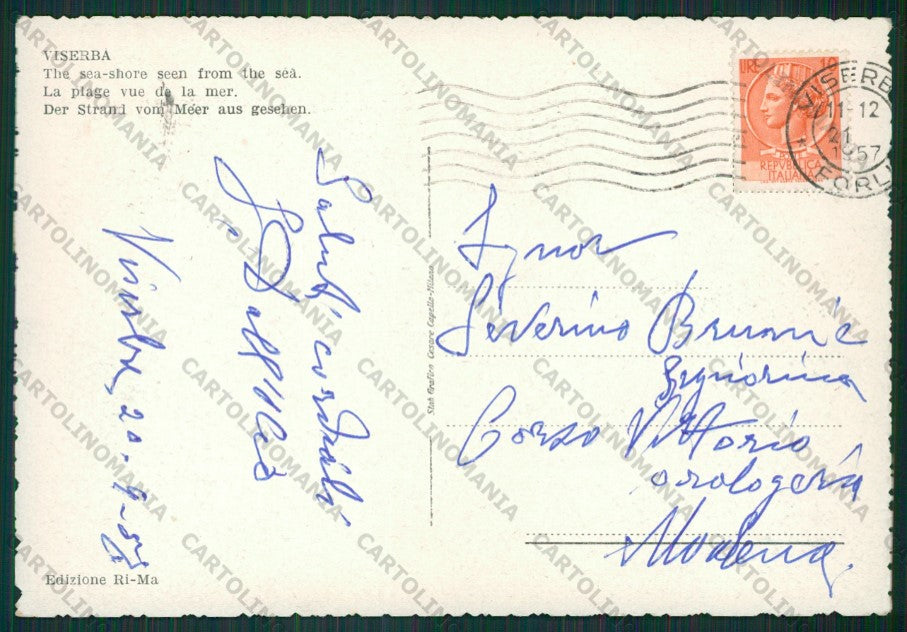 VISERBA
The sea-shore seen from the sea.
La plage vue de la mer.
Der Strand vom Meer aus gesehen.
Saluti cordiali
Viserba, 20-9-57
Edizione Ri-Ma
Stab. Grafico Cesare Capello-Milano
LIRE 10
REPVBBLICA
ITALIANA
VISERB
11-12
21
1957
FORLI
Signor
Severino Brunni e
Signorina
Corso Vittorio
orologeria
Modena
CARTOLINOMANIA